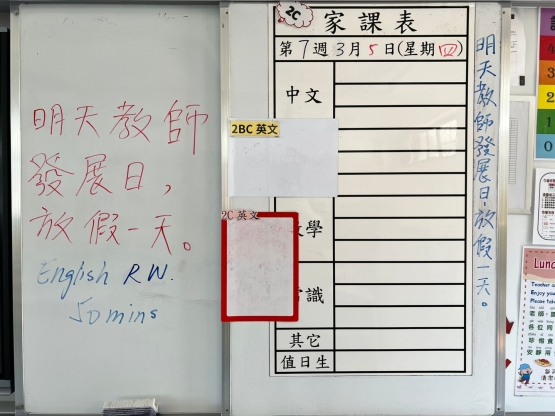 明天教師
發展日，
放假一天。
English R W.
50 mins
2C
家課表
第7週3月5日(星期四)
中文
2BC 英文
數學
2C 英文
常識
其它
值日生
明天教師發展日，放假一天。
Lunc
Teacher a
Enjoy you
Please take
老師，
各位同
珍惜食
安靜用